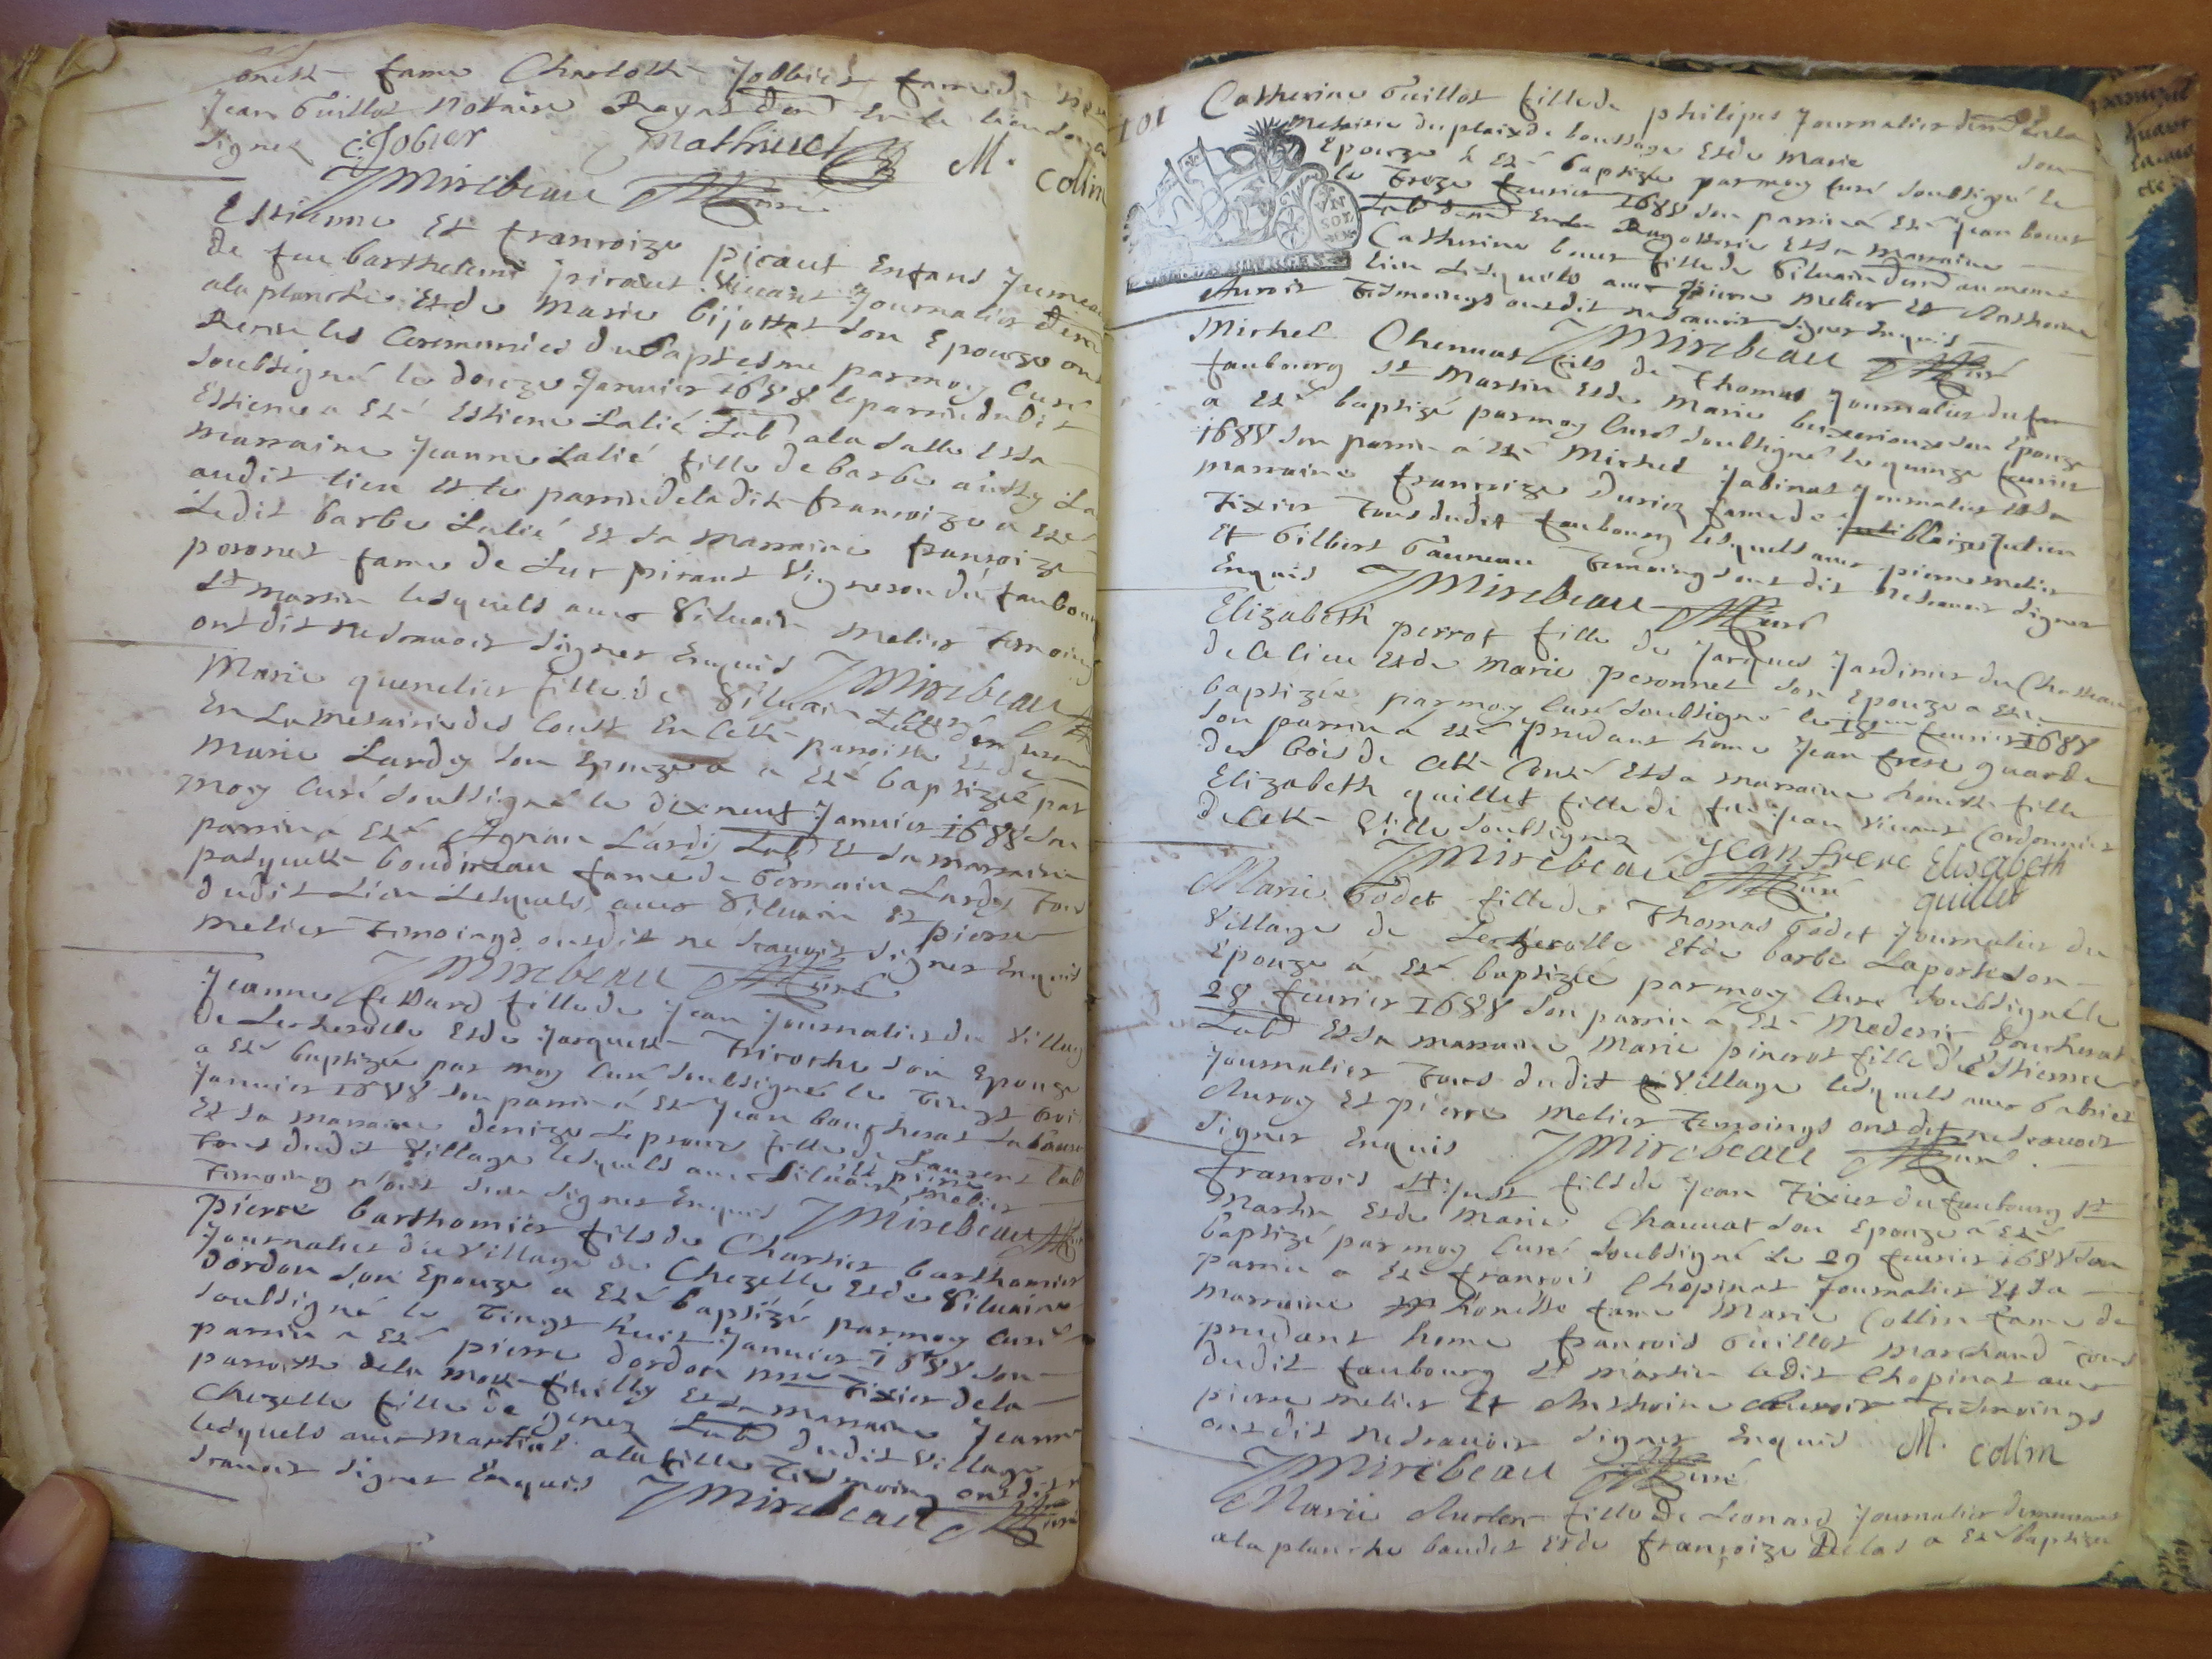 honeste fame Charlotte Jobbier fame de
Jean Guillot Notaire Royal dem.t En ce lieu
signez C. Jobier Mathiuet M. Collin
J Mirebeau Curé
Estienne Et francoize piraut Enfans Jumeaux
de feu barthelemi piraut vivant Journalier dem
a la planche Et de Marie bijottat son Epouze ont
Receu les Ceremonies du Baptesme par moy Curé
soubsigné le douze Janvier 1688 le parrin dudit
Estienne a Esté Estiene Lalié Lab a la salle Et sa
marraine Jeanne Lalié fille de barbe aussy
audit lieu Et le parrin de la dite francoize a Esté
Ledit barbe Lalié Et sa Marraine francoize
peronet fame de Luc piraut Vigneron du faubour
St Martin lesquels avec Silvain Melier Temoing
ont dit ne scavoir signer Enquis J Mirebeau
Marie quenelier fille de Silvain Lab dem
En La Metairie des Coust En Cette parroisse Et de
Marie Lardy son Epouze a Esté baptizée par
moy Curé soubsigné le dixneuf Janvier 1688 son
parrin a Esté Agnan Lardy Lab Et sa marraine
pasquette boudineau fame de Germain Lardy Tous
dudit Lieu Lesquels avec Silvain Et pierre
Melier Temoings ont dit ne scavoir signer Enquis
J Mirebeau Curé
Jeanne fille de Jean Journalier du Village
de Lecherolle Et de Jacquette Trivoche son Epouze
a Esté baptizée par moy Curé soubsigné le Vingt trois
Janvier 1688 son parrin a Esté Jean boucherat Laboureur
Et sa marraine denize Leproux fille de Laurent Lab
Tous dudit Village lesquels avec Silvain Et pierre Melier
Temoing n'ont sceu signer Enquis J Mirebeau
pierre barthomier fils de Charles barthomier
Journalier du Village de Chezelle Et de Silvaine
dordon son Epouze a Esté baptizé par moy Curé
soubsigné le Vingt huit Janvier 1688 son
parrin a Esté pierre dordon Tixier de la
parroisse de la Motte feuilly Et sa marraine Jeanne
Chezelle fille de genez Lab dudit Village
lesquels avec Martial alafille Tesmoing ont dit ne
scavoir signer Enquis J Mirebeau Curé
101 Catherine Guillot fille de philipes Journalier dem.t En la
Metairie du plaix de boussage Et de Marie son
Epouze a Esté baptizée par moy Curé soubsigné le
le Treze fevrier 1688 son parrin a Esté Jean bouet
Lab dem.t En la Ragotterie Et sa Marraine
Catherine bouet fille de Silvain dem.t au meme
Lieu Lesquels avec pierre Melier Et Anthoine
Auroir Tesmoings ont dit ne scavoir signer Enquis
J Mirebeau Curé
Michel Chenuat fils de Thomas Journalier du
faubourg St Martin Et de Marie son Epouze
a Esté baptizé par moy Curé soubsigné le quinze fevrier
1688 son parrin a Esté Michel Jabinat Journalier Et sa
marraine francoize fame de blaize Julien
Tixier Tous dudit faubourg lesquels avec pierre Melier
Et Gilbert Gauneau Temoings ont dit ne scavoir signer
Enquis J Mirebeau Curé
Elizabeth perrot fille de Jacques Jardinier du Chasteau
de Ce lieu Et de Marie peronnet son Epouze a Esté
baptizée par moy Curé soubsigné le 18 fevrier 1688
son parrin a Esté prudant home Jean frere guarde
des bois de Cette Conté Et sa marraine honeste fille
Elizabeth quillet fille de feu Jean vivant Cordonnier
de Cette Ville soubsignez Jean frere Elisabeth
J Mirebeau Curé quillet
Marie Godet fille de Thomas Godet Journalier du
Village de Lecherolle Et de barbe Laporte son
Epouze a Esté baptizée par moy Curé soubsigné le
28 fevrier 1688 son parrin a Esté Mederic boucherat
Lab Et sa marraine Marie pinerot fille de Estienne
Journalier Tous dudit Village lesquels avec Gabriel
Auroy Et pierre Melier Temoings ont dit ne scavoir
signer Enquis J Mirebeau Curé
francois St Just fils de Jean Tixier du faubourg St
Martin Et de Marie Chauvat son Epouze a Esté
baptizé par moy Curé soubsigné Le 29 fevrier 1688 son
parrin a Esté francois Chopinat Journalier Et sa
marraine honeste fame Marie Collin fame de
prudant home francois Guillot Marchand Tous
dudit faubourg St Martin ledit Chopinat avec
pierre Melier Et Anthoine Auroir Tesmoings
ont dit ne scavoir signer Enquis M. Collin
J Mirebeau Curé
Marie fille de Leonard Journalier demeurant
a la planche baudet Et de francoize a Esté baptizée